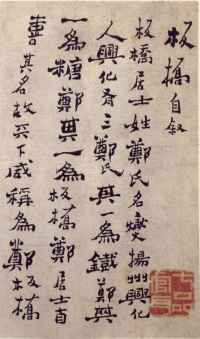 板橋自叙
板橋居士姓鄭氏名燮揚州興化
人興化有三鄭氏其一為鐵鄭其
一為糖鄭其一為板橋鄭居士自
喜其名故天下咸稱為鄭板橋